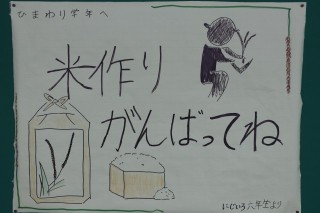 ひまわり学年へ
米作り
がんばってね
にじいろ六年生より